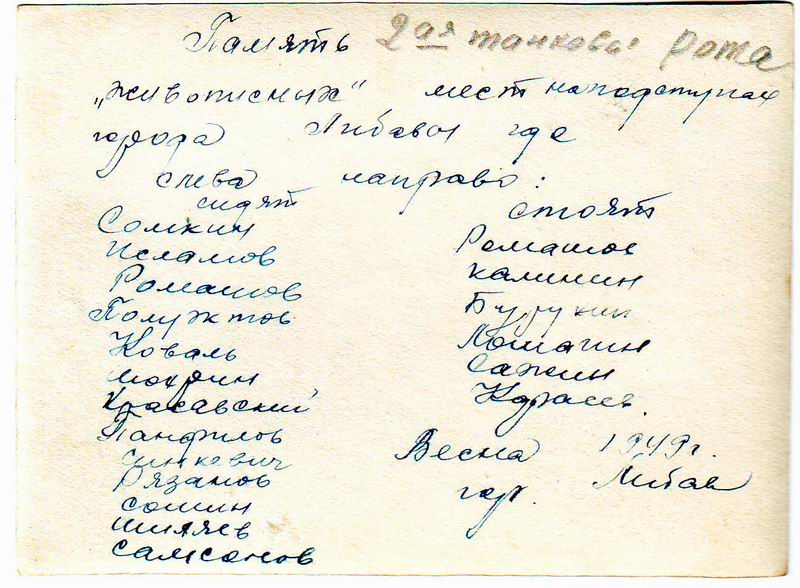 Память 2ая танковая рота
„живописных“ мест на подступах
города Либавы где
слева направо:
сидят
Сомкин
Исламов
Ромашов
Полуэктов
Коваль
Мохрин
Красавский
Панфилов
Синкевич
Рязанов
Сошин
Шиляев
Самсонов
стоят
Ромашов
Калинин
Бурукин
Ломагин
Сажин
Весна 1949г.
гор. Либава